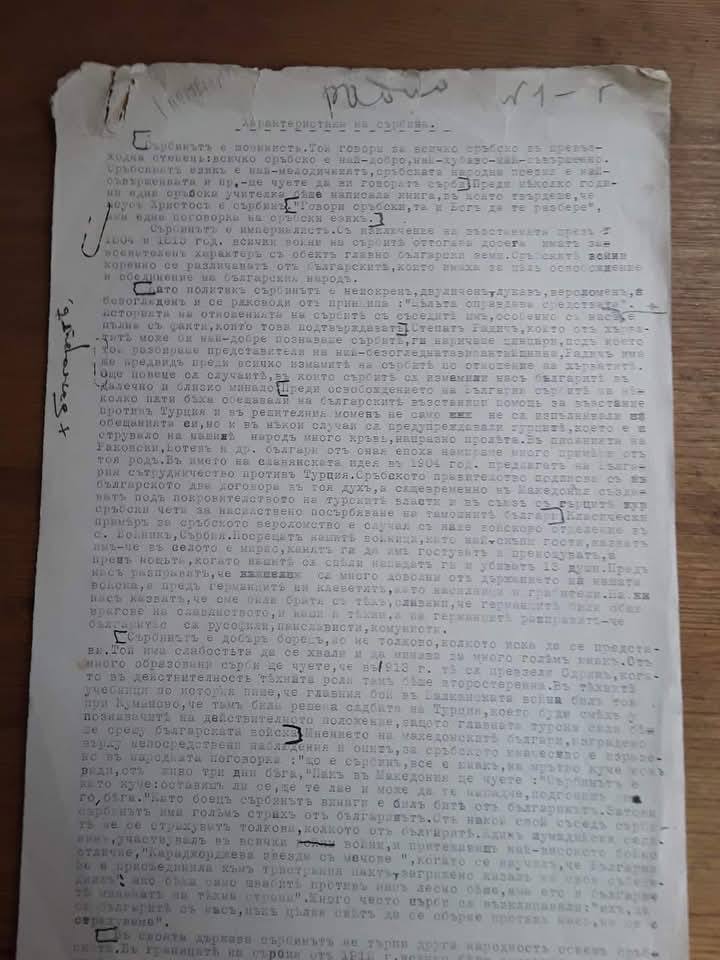 радио №1-г
Характеристика на сърбина.
Сърбинътъ е шовинистъ. Той говори за всичко сръбско въ превъз-
ходна степень: всичко сръбско е най-добро, най-хубаво-най-съвършено.
Сръбскиятъ езикъ е най-мелодичниятъ, сръбската народна песня е най-
съвършенната и пр,-ще чуете да ви говорятъ сърби Преди нѣколко годи-
ни една сръбска учителка бѣше написала книга, въ която твърдеше, че
Исусъ Христосъ е сърбинъ. "Говори сръбски, та и Богъ да те разбере",
една поговорка на сръбски езикъ.
Сърбинътъ е империалистъ. Съ изключение на въстанията презъ
1804 и 1813 год. всички войни на сърбитѣ оттогава досега иматъ за-
воевателенъ характеръ съ обектъ главно български земи. Сръбскитѣ войни
коренно се различаватъ отъ българскитѣ, които имаха за цѣль освобождение
и обединение на българския народъ.
Като политикъ сърбинътъ е неискренъ, двуличенъ, лукавъ, вероломенъ,
безогледенъ и се ржководи отъ принципа :"цѣльта оправдава срѣдствата".
Историята на отношенията на сърбитѣ съ съседитѣ имъ, особенно съ насъ, е
пълна съ факти, които това подтвърждаватъ Степанъ Радичъ, който отъ хърва-
титѣ може би най-добре познаваше сърбитѣ, ги наричаше цинцари, подъ което
той разбираше представители на най-безогледната Радичъ има
же предвидъ преди всичко измамитѣ на сърбитѣ по отношение на хърватитѣ.
Още повече сж случаитѣ, въ които сърбитѣ сж измамили насъ българитѣ въ
далечно и близко минало Преди освобождението на България сърбитѣ на нѣ-
колко пжти бѣха обещавали на българскитѣ възстаници помощь за възстание
противъ Турция и въ решителния моментъ не само не сж изпълнявали
обещанията си, но и въ нѣкои случаи сж предупреждавали турцитѣ, което е
струвало на нашиятъ народъ много кръвь, напразно пролѣта. Въ писанията на
Раковски, Ботевъ и др. българи отъ оная епоха намираме много примѣри отъ
тоя родъ. Въ името на славянската идея въ 1904 год. предлагатъ на Бълга-
рия сътрудничество противъ Турция. Сръбското правителство подписва съ
българското два договора въ тоя духъ, а сжщевременно въ Македония създа-
ватъ подъ покровителството на турскитѣ власти и въ съюзъ съ гърцитѣ
сръбски чети за насилствено посърбяване на тамошнитѣ българи Класически
примѣръ за сръбското вероломство е случая съ наше войсково отдѣление въ
с. Бойникъ, Сърбия. Посрещатъ нашитѣ войници, като най-скъпи гости, казватъ
имъ-че въ селото е мирно, канятъ ги да имъ гостуватъ и пренощуватъ, а
презъ нощьта, когато нашитѣ сж спѣли нападатъ ги и убиватъ 13 души. Предъ
насъ разправятъ, че сж много доволни отъ държанието на нашата
войска, а предъ германцитѣ ни клеветятъ, като насилници и грабители. На
насъ казватъ, че сме били братя съ тѣхъ, славяни, че германцитѣ били общи
врагове на славянството, и наши и тѣхни, а на германцитѣ разправятъ-че
българитѣ сж русофили, панслависти, комунисти.
Сърбинътъ е добъръ борецъ, но не толкова, колкото иска да се предста-
ви. Той има слабостьта да се хвали и да минава за много голѣмъ юнакъ. Отъ
много образовани сърби ще чуете, че въ 1913 г. тѣ сж превзели Одринъ, кога-
то въ действителность тѣхната роля тамъ бѣше второстепенна. Въ тѣхнитѣ
учебници по история пише, че главния бой въ Балканската война билъ той
при Куманово, че тамъ била решена сждбата на Турция, което буди смѣхъ у
познавачитѣ на действителното положение, защото главната турска сила бѣ-
ше срещу българската войска Мнението на македонскитѣ българи, изградено
върху непосредствени наблюдения и опитъ, за сръбското юначество е изразе-
но въ народната поговорка :"що е сърбинъ, все е юнакъ, на мрътво куче ножъ
вади, отъ живо три дни бѣга, "Пакъ въ Македония ще чуете :"Сърбинътъ е
като куче: оставишъ ли се, ще те лае и може да те нападне, подгонишъ
го, бѣга. "Като боецъ сърбинътъ винаги е билъ битъ отъ българинътъ. Затова
сърбинътъ има голѣмъ страхъ отъ българинътъ. Отъ никой свой съседъ сърби-
тѣ не се страхуватъ толкова, колкото отъ българитѣ. Единъ шумадийски селя-
нинъ, участвувалъ въ всички войни, и притежавашъ най-високото бойно
отличие, "Караджорджева звезда съ мечове ", когато се научилъ, че България
се е присъединила къмъ тристранния пактъ, загрижено казалъ на своя събесе-
дникъ: ако бѣха само швабитѣ противъ насъ лесно бѣше, ама ето и българи-
тѣ минаватъ на тѣхна страна". Много често сърби сж възклицавали: "ехъ, да
сж българитѣ съ насъ, нѣка цѣлия свѣтъ да се обърне противъ насъ, не се
страхуваме".
Въ своята държава сърбинътъ не търпи друга народность освенъ сръб-
ската. Въ границитѣ на Сърбия отъ 1912 г. всичко